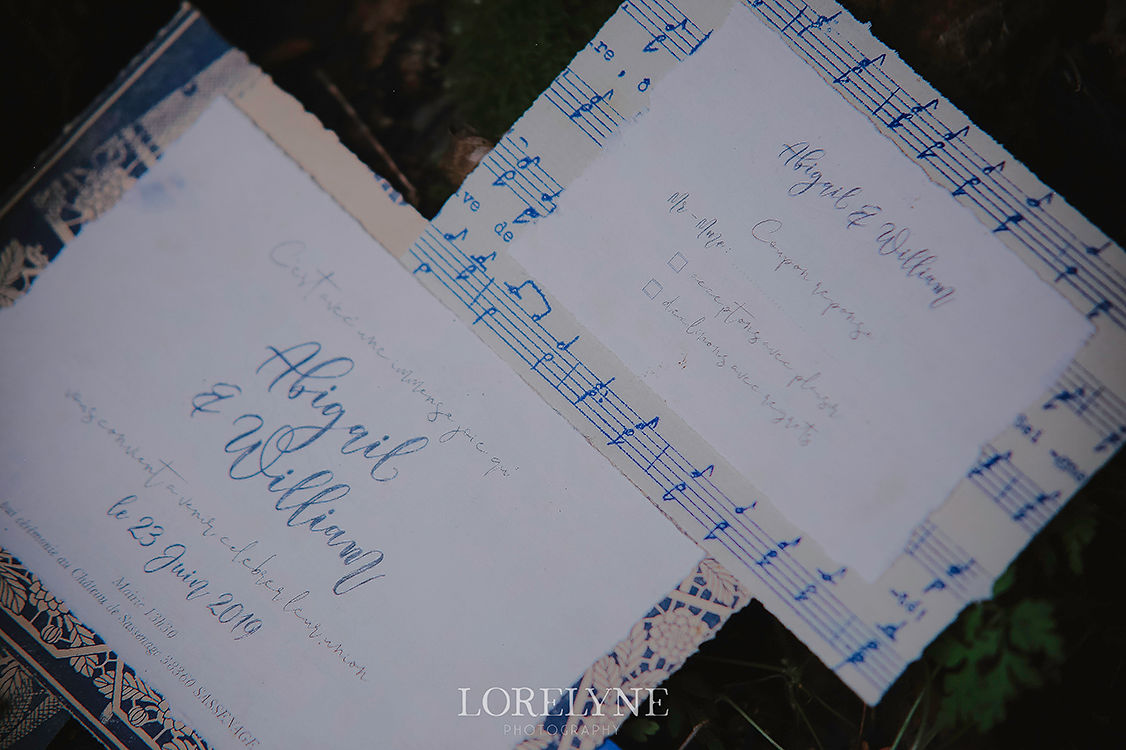 C'est avec une immense joie qu'
Abigail
& William
vous convient a venir celebrer leur union
le 23 Juin 2019
Mairie 13h30
cérémonie au Château de Sassenage 38360 SASSENAGE
Abigail & William
Coupon reponse
Mr-Mme:
acceptons avec plaisir
declinons avec regrets
re, o
ve de
LORELYNE
PHOTOGRAPHY